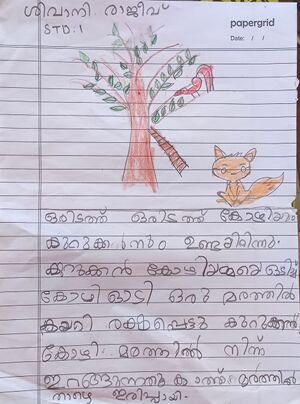 ശിവാനി. രാജീവ്
STD:1
papergrid
Date: / /
ഒരിടത്ത് ഒരിടത്ത് കോഴിയും
കുറുക്കനും ഉണ്ടായിരുന്നു.
കുറുക്കൻ കോഴിയെ
കോഴി ഓടി ഒരു മരത്തിൽ
കയറി രക്ഷപ്പെട്ടു കുറുക്കൻ
കോഴി മരത്തിൽ നിന്ന്
ഇറങ്ങുന്നതും കാത്ത് മരത്തിൽ
താഴെ ഇരിപ്പായി.